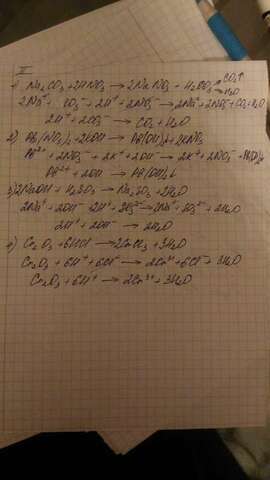 II
1) Na₂CO₃ + 2HNO₃ → 2NaNO₃ + H₂CO₃ CO₂↑ H₂O
2Na⁺ + CO₃²⁻ + 2H⁺ + 2NO₃⁻ → 2Na⁺ + 2NO₃⁻ + CO₂ + H₂O
2H⁺ + CO₃²⁻ → CO₂ + H₂O
2) Pb(NO₃)₂ + 2KOH → Pb(OH)₂↓ + 2KNO₃
Pb²⁺ + 2NO₃⁻ + 2K⁺ + 2OH⁻ → 2K⁺ + 2NO₃⁻ + Pb(OH)₂↓
Pb²⁺ + 2OH → Pb(OH)₂↓
3) 2NaOH + H₂SO₄ → Na₂SO₄ + 2H₂O
2Na⁺ + 2OH⁻ 2H⁺ + SO₄²⁻ → 2Na⁺ + SO₄²⁻ + 2H₂O
2H⁺ + 2OH⁻ → 2H₂O
4) Cr₂O₃ + 6HCl → 2CrCl₃ + 3H₂O
Cr₂O₃ + 6H⁺ + 6Cl⁻ → 2Cr³⁺ + 6Cl⁻ + 3H₂O
Cr₂O₃ + 6H⁺ → 2Cr³⁺ + 3H₂O